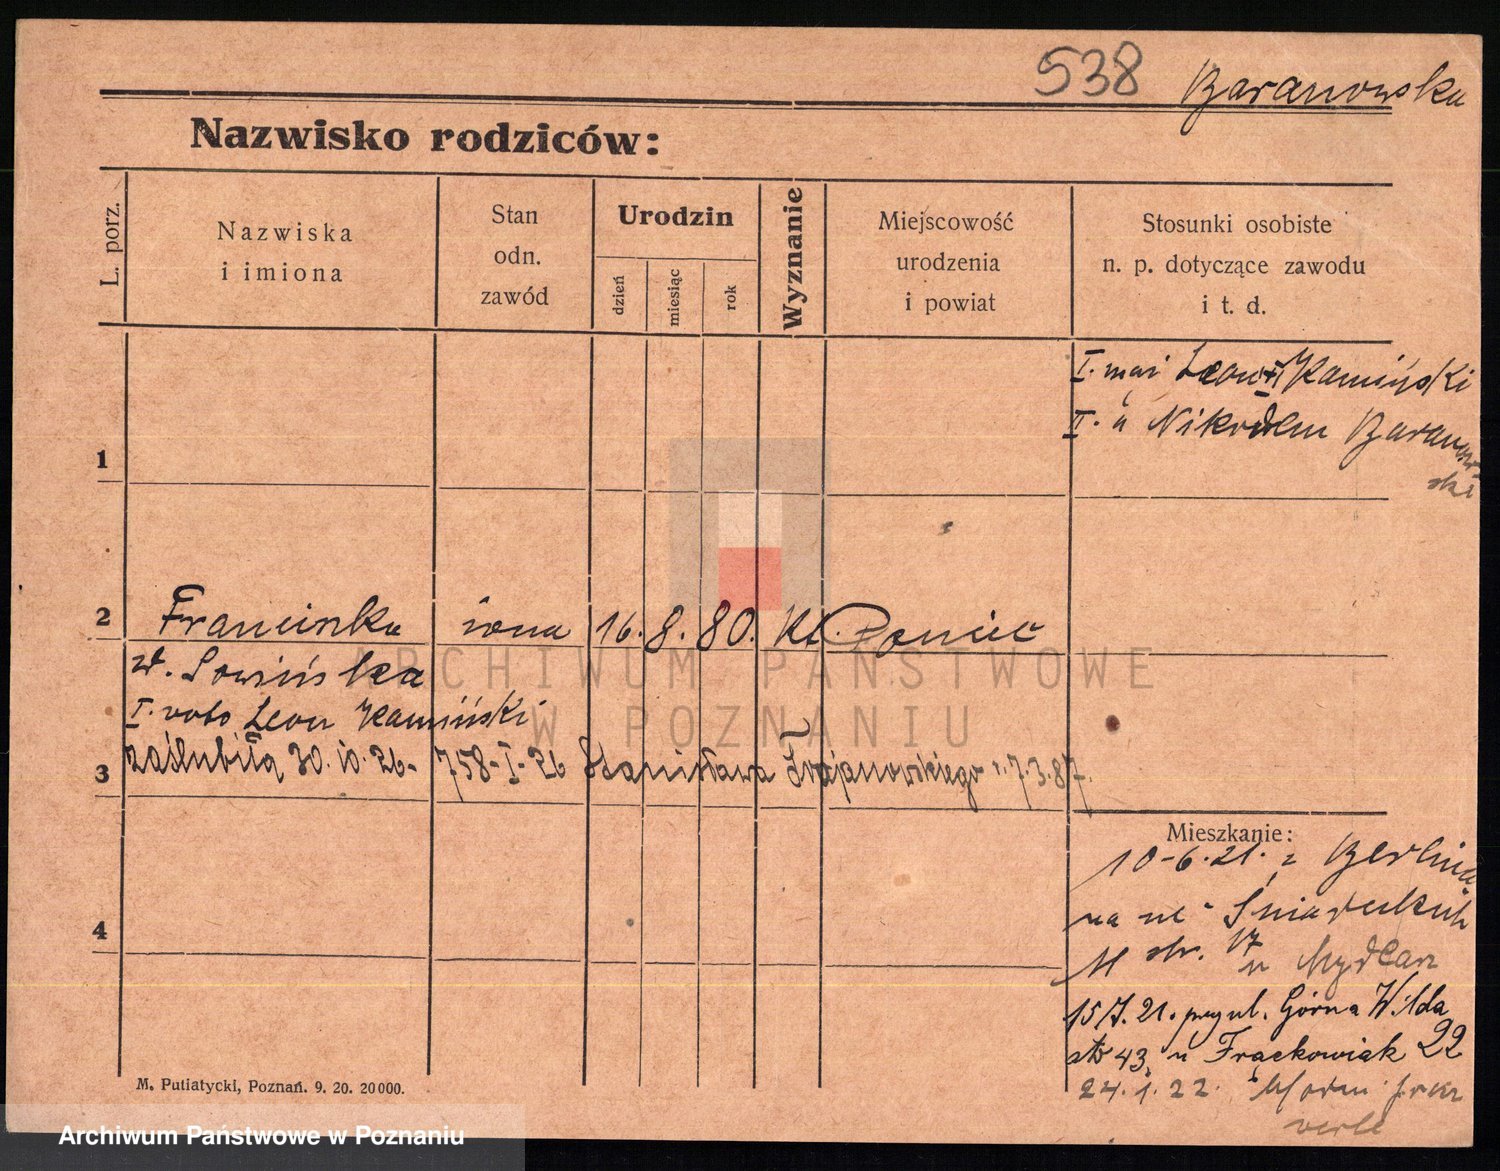 538 Baranowska
Nazwisko rodziców:
L. porz.
Nazwiska
i imiona
Stan
odn.
zawód
Urodzin
dzień
miesiąc
rok
Wyznanie
Miejscowość
urodzenia
i powiat
Stosunki osobiste
n. p. dotyczące zawodu
i t. d.
I. mąż Leon Kamiński
II. " Nikodem Baranow
ski
1
2 Franciszka 16. 8. 80. Kt. Poniec
z d. Sowińska
I. voto Leon Kamiński
3 zaślubiła 30.10.26 - 758-I-26 Stanisława Trajanowskiego r. 7.3.87.
Mieszkanie:
10-6.21. z Berlina
na ul. Śniadeckich
11 str. 17
u
4
15/7.21. przy ul. Górna Wilda
43, u Frąckowiak 22
24.1.22.
M. Putiatycki, Poznań. 9. 20. 20000.
ARCHIWUM PAŃSTWOWE
W POZNANIU
Archiwum Państwowe w Poznaniu